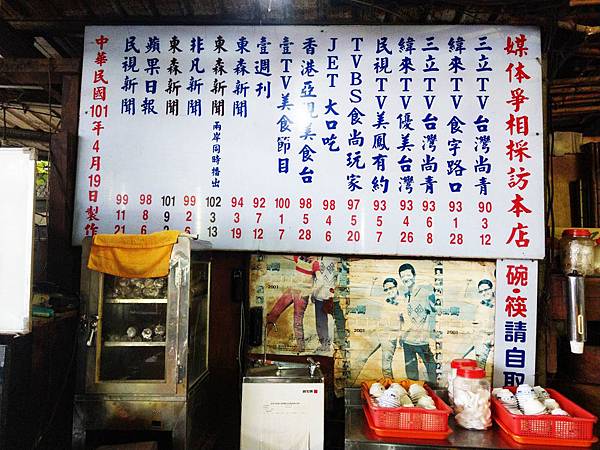 媒体爭相採訪本店
三立TV台灣尚青 90 3 12
緯來TV食字路口 93 1 28
三立TV台灣尚青 93 6 8
緯來TV優美台灣 93 4 26
民視TV美鳳有約 93 5 7
TVBS食尚玩家 97 5 20
JET大口吃 98 4 6
香港亞視美食台 98 7 28
壹TV美食節目 100 1 5
壹週刊 92 7 12
東森新聞 94 3 19
非凡新聞 兩岸同時播出 102 3 13
東森新聞 99 2
蘋果日報 101 9
民視新聞 98 8 6
99 11 21
中華民國101年4月19日製作
碗.筷請自取
2001
2001